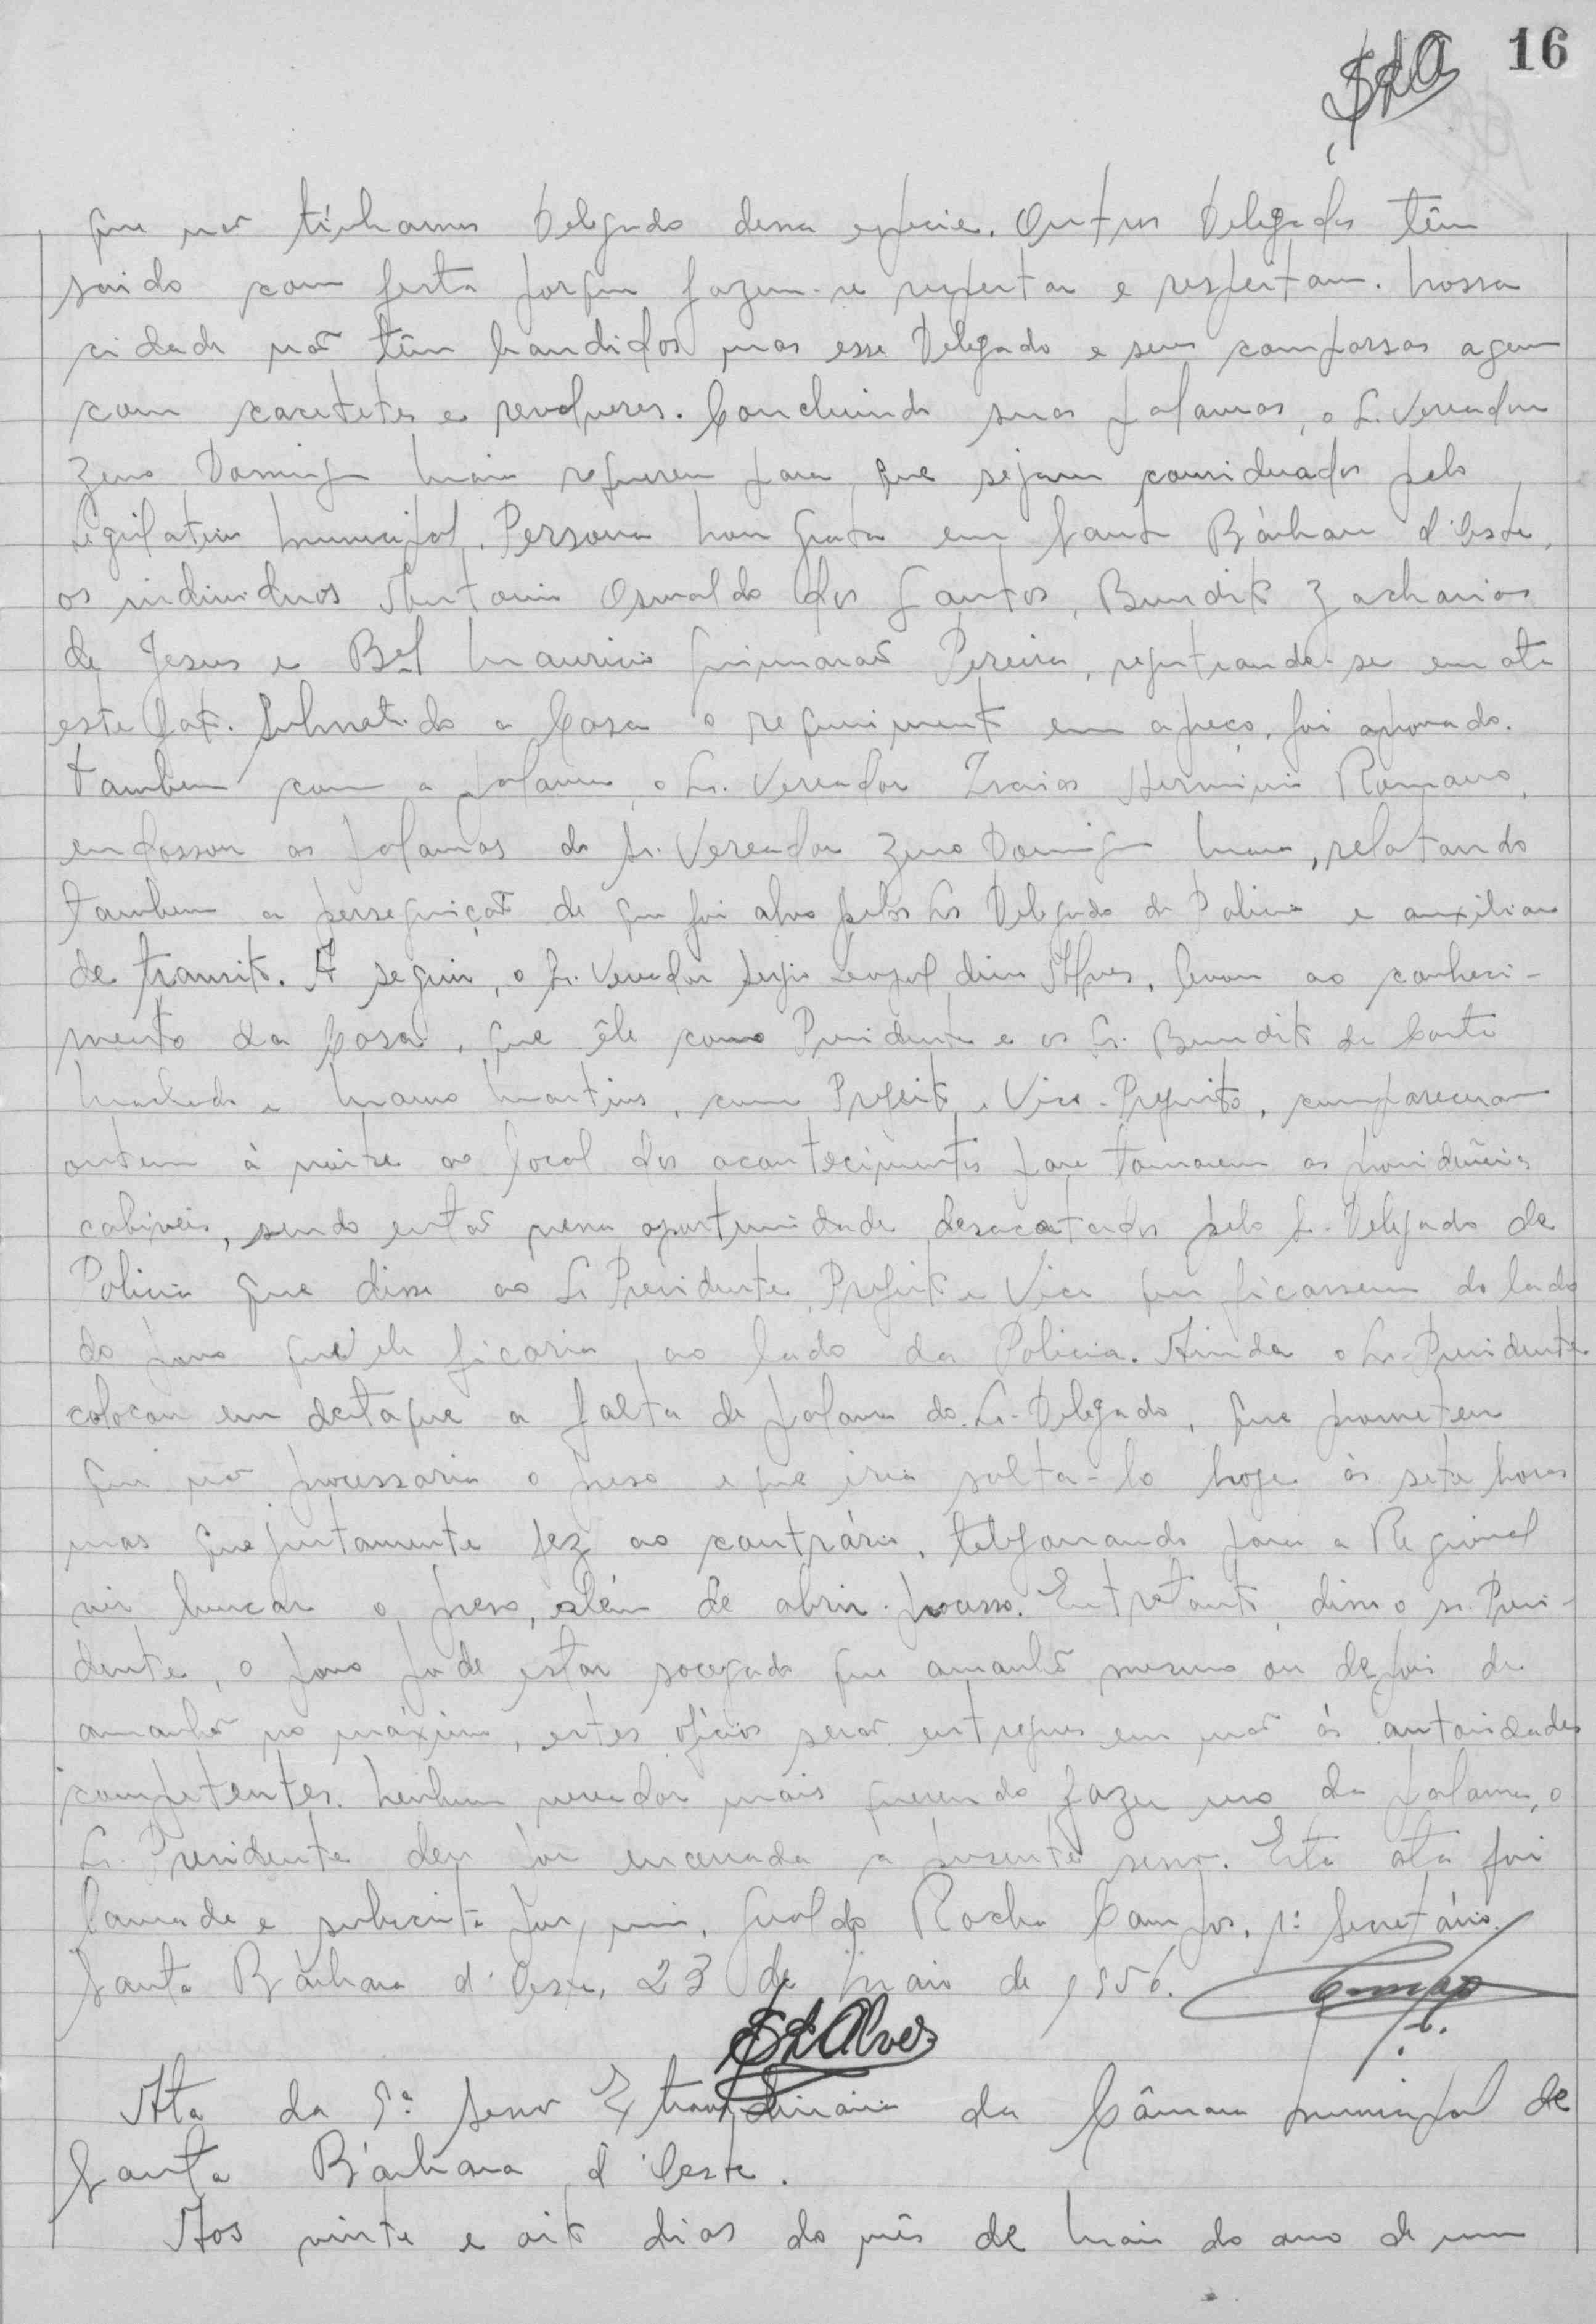 16
que não tinhamos Delegado dessa especie. Outros Delegados têm
saido com festa porque fazem-se respeitar e respeitam. Nossa
cidade não têm bandidos mas esse Delegado e seus comparsas agem
com cacetetes e revolveres. Concluindo suas palavras, o Sr. Vereador
Zeno Domingos Maia requereu para que sejam considerados pelo
Legislativo Municipal, Persona Non Grata em Santa Bárbara d'Oeste,
os individuos Antonio Oswaldo dos Santos, Benedito Zacharias
de Jesus e Bel Mauricio Guimarães Pereira, registrando-se em ata
este fato. Submetido a Casa o requerimento em apreço, foi aprovado.
Tambem com a palavra, o Sr. Vereador Isaias Herminio Romano,
endossou as palavras do Sr. Vereador Zeno Domingos Maia, relatando
tambem a perseguição de que foi alvo pelos Srs Delegado de Policia e auxiliar
de transito. A seguir, o Sr. Vereador Sergio Leopoldino Alves, levou ao conheci-
mento da Casa, que êle como Presidente e os Srs. Benedito da Costa
Machado e Mauro Martins, como Prefeito e Vice-Prefeito, compareceram
ontem à noite ao local dos acontecimentos para tomarem as providências
cabiveis, sendo então nessa oportunidade desacatados pelo Sr. Delegado de
Policia que disse ao Sr Presidente, Prefeito e Vice que ficassem do lado
do povo que ele ficaria, ao lado da Policia. Ainda o Sr. Presidente
colocou em destaque a falta de palavra do Sr. Delegado, que prometeu
que não processaria o preso e que iria solta-lo hoje às sete horas
mas que justamente fez ao contrário, telefonando para a Regional
vir buscar o preso, além de abrir processo. Entretanto, disse o sr. Presi-
dente, o povo pode estar socegado que amanhã mesmo ou depois de
amanhã no máximo, estes ofícios serão entregues em mão às autoridades
competentes. Nenhum vereador mais querendo fazer uso da palavra, o
Sr. Presidente deu por encerrada a presente sessão. Esta ata foi
lavrada e subscrita por mim, Geraldo Rocha Campos, 1º Secretário.
Santa Bárbara d'Oeste, 23 de Maio de 1956. Campos
SLAlves
Ata da 5ª Sessão Extraordinaria da Câmara Municipal de
Santa Bárbara d'Oeste.
Aos vinte e oito dias do mês de Maio do ano de um